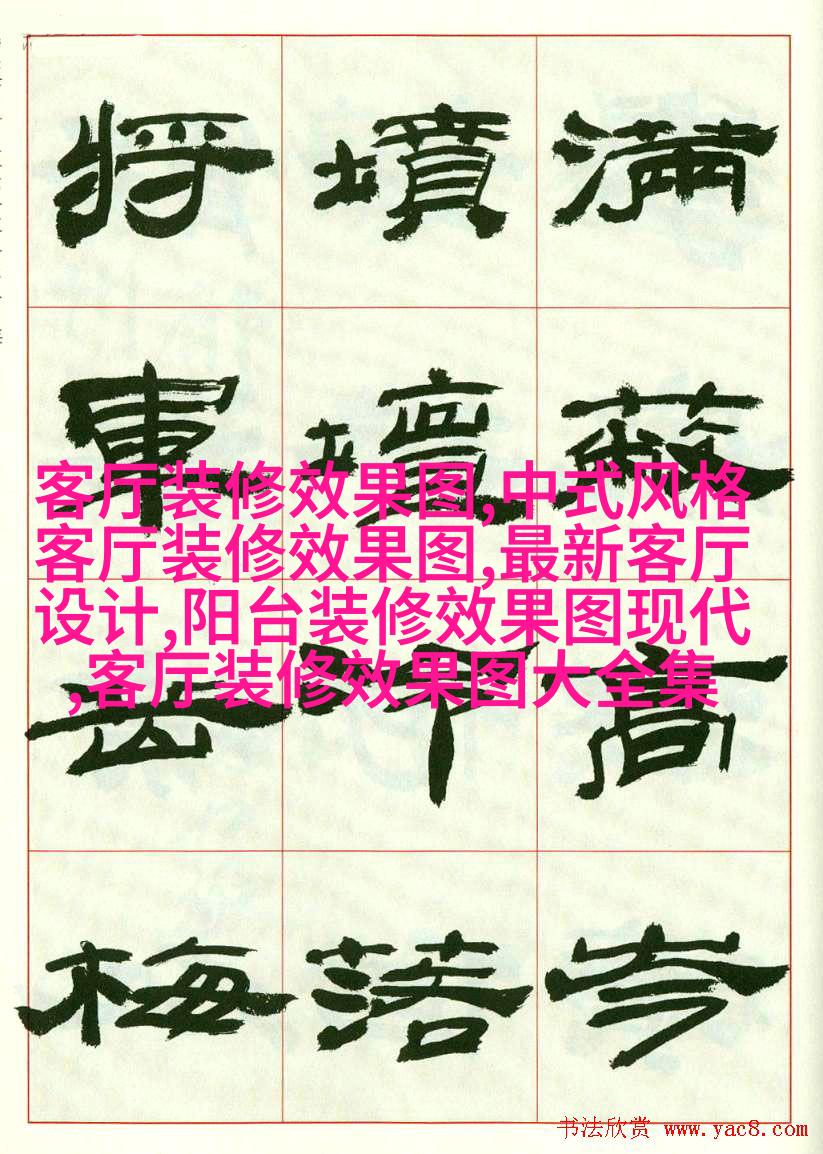 滿蔽高岑
墳壇落
將軍岳梅
客厅装修效果图,中式风格
客厅装修效果图,最新客厅
设计,阳台装修效果图现代
,客厅装修效果图大全集
书法欣赏 www.yac8.com